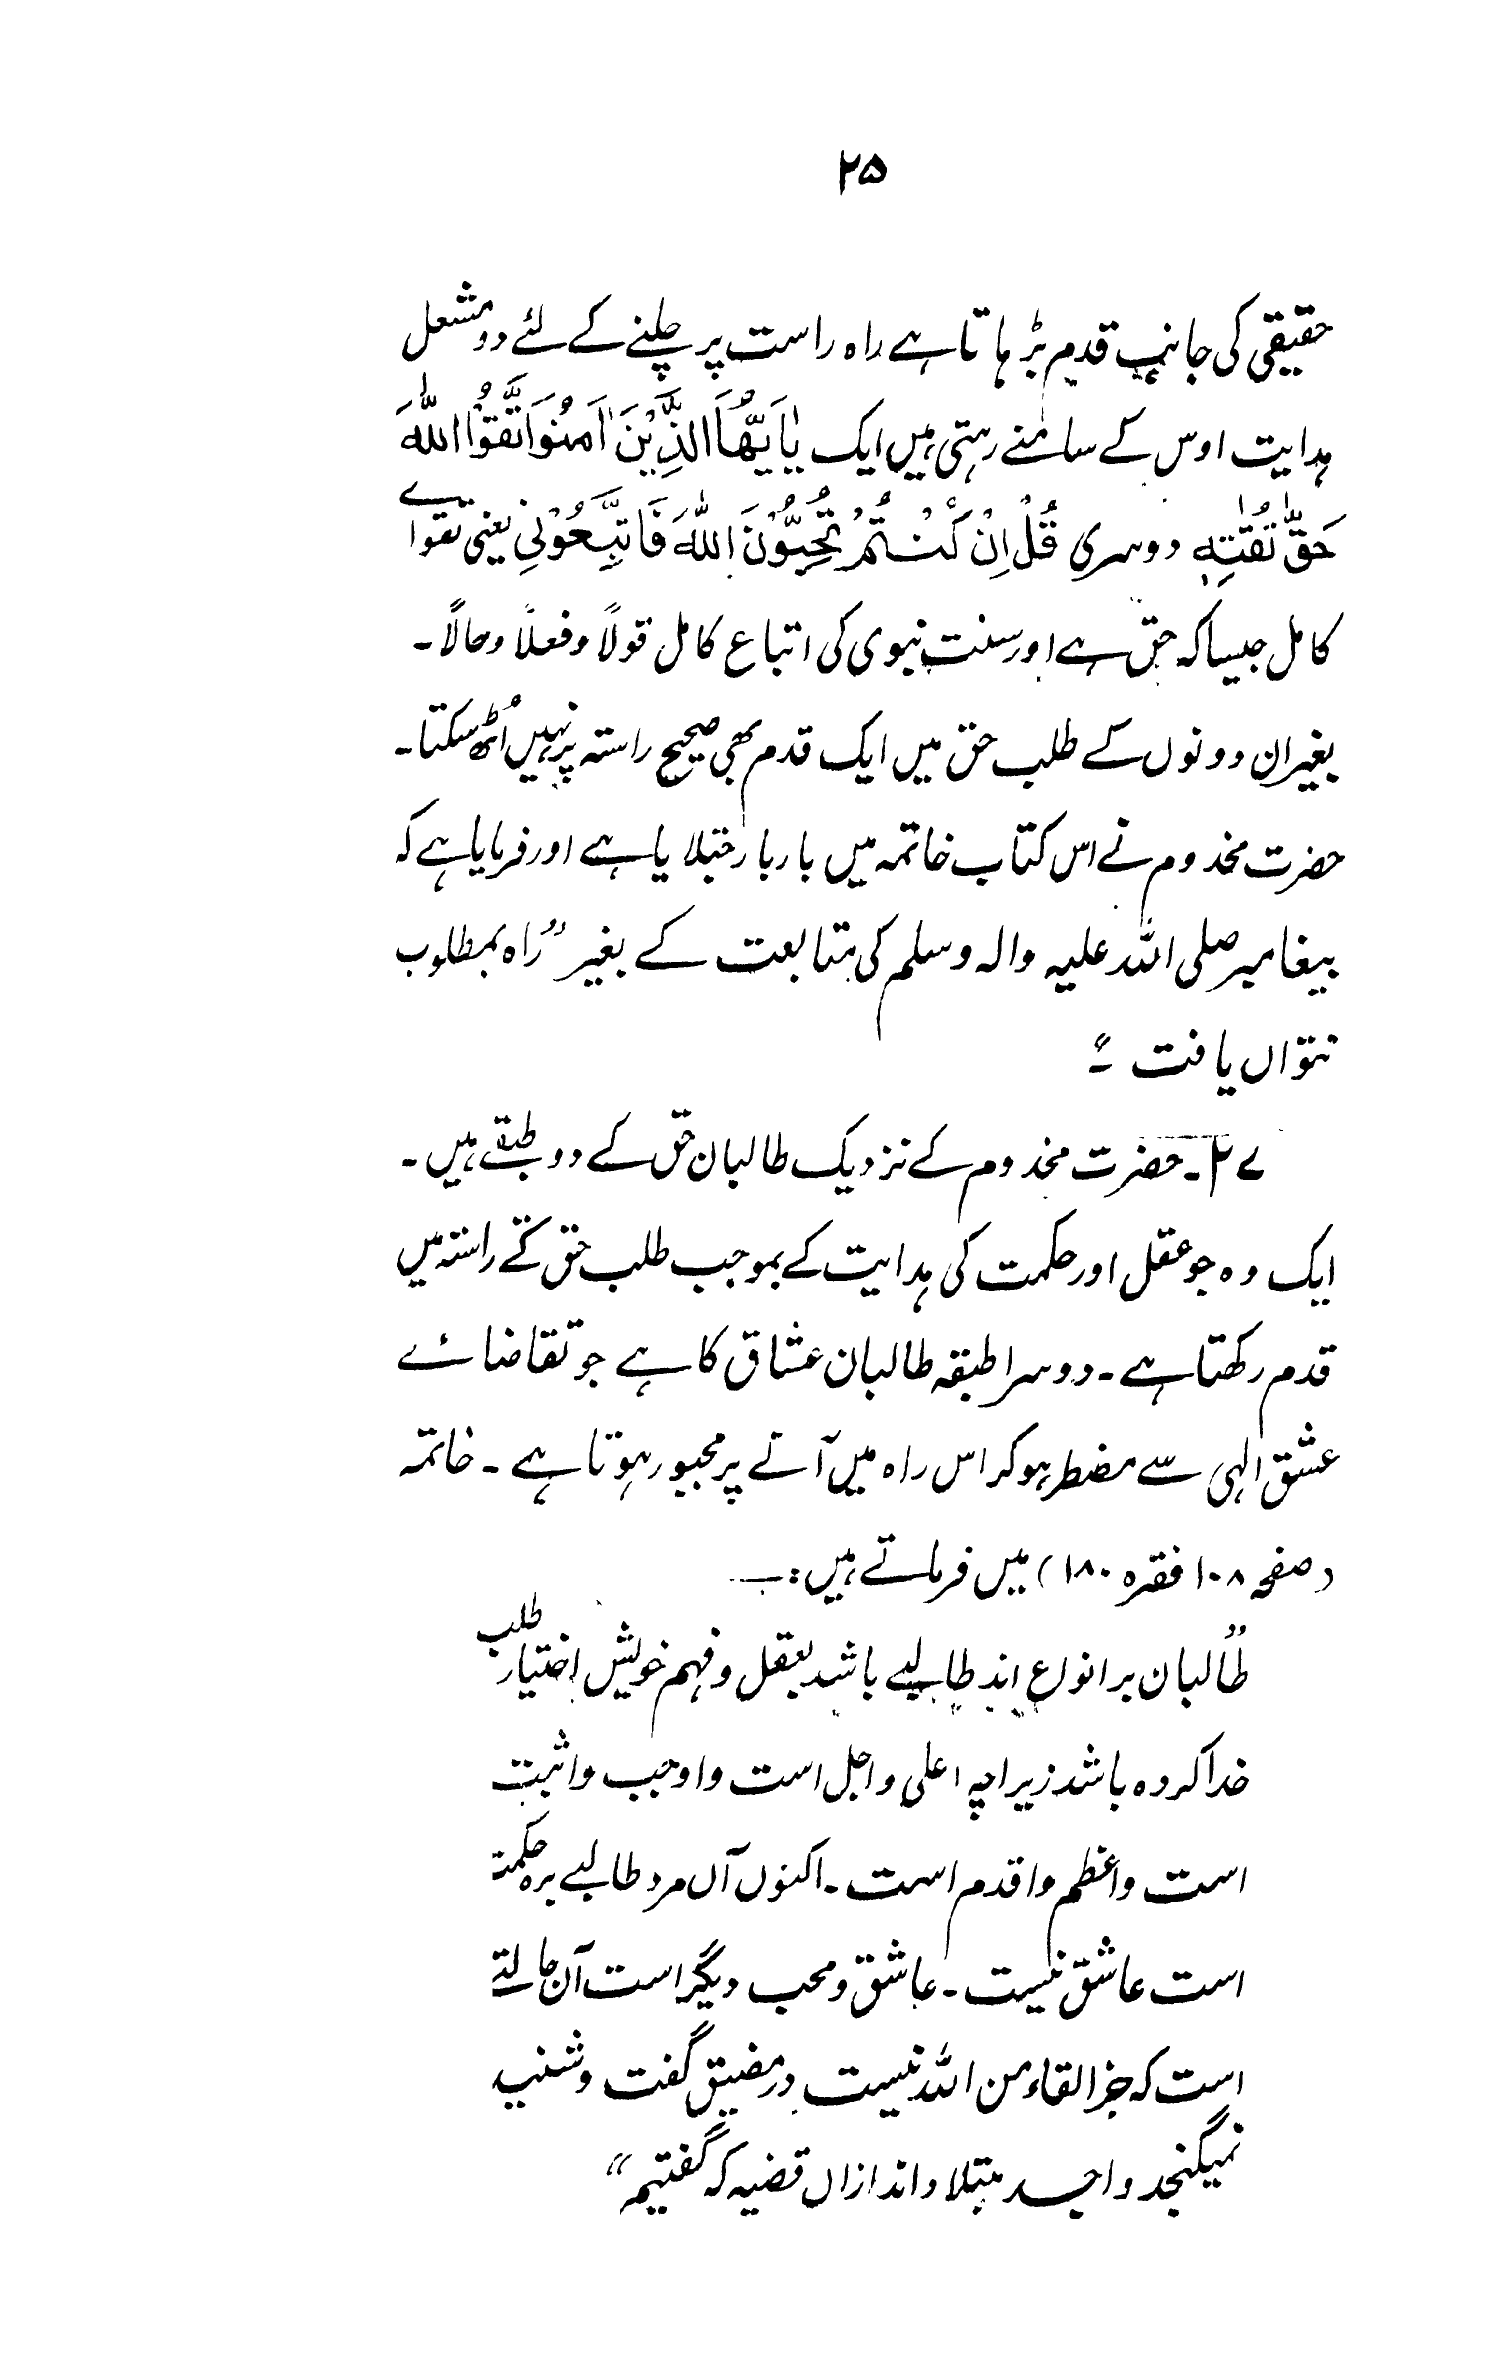 ۲۵
حقیقی کی جانب قدم بڑہاتا ہے راہ راست پر چلنے کے لئے دو مشعل
ہدایت اوس کے سامنے رہتی ہیں ایک یٰاَیُّهَا الَّذِیْنَ اٰمَنُوا تَّقُوْا اللّٰهَ
حَقَّ تُقٰتِهٖ دوسری قُلْ اِنْ کُنْتُمْ تُحِبُّوْنَ اللّٰهَ فَاتَّبِعُوْنِیْ یعنی تقواے
کامل جیسا کہ حق ہے اور سنت نبوی کی اتباع کامل قولاً و فعلاً و حالاً۔
بغیر ان دونوں کے طلب حق میں ایک قدم بھی صحیح راستہ پر نہیں اُٹھ سکتا۔
حضرت مخدوم نے اس کتاب خاتمہ میں بار بار جتلایا ہے اور فرمایا ہے کہ
پیغامبر صلی اللہ علیہ والہ وسلم کی متابعت کے بغیر ”راہ بمطلوب
نتواں یافت“۔
۲۷۔ حضرت مخدوم کے نزدیک طالبان حق کے دو طبقے ہیں۔
ایک وہ جو عقل اور حکمت کی ہدایت کے بموجب طلب حق کے راستہ میں
قدم رکھتا ہے۔ دوسرا طبقہ طالبان عشاق کا ہے جو تقاضائے
عشق الٰہی سے مضطر ہو کر اس راہ میں آنے پر مجبور ہوتا ہے۔ خاتمہ
(صفحہ ۱۰۸ فقرہ ۱۸۰) میں فرماتے ہیں:۔
”طالبان بر انواع اند طالبے باشد بعقل و فہم خویش اختیار طلب
خدا کردہ باشد زیراچہ اعلی و اجل است و اوجب و اثبت
است و اعظم و اقدم است۔ اکنوں آں مرد طالبے برہ حکمت
است عاشق نیست۔ عاشق و محب دیگر است آن حالتے
است کہ جز القاء من اللہ نیست در مضیق گفت و شنید
نمیگنجد واحد مبتلا داند ازاں قضیہ کہ گفتیم“